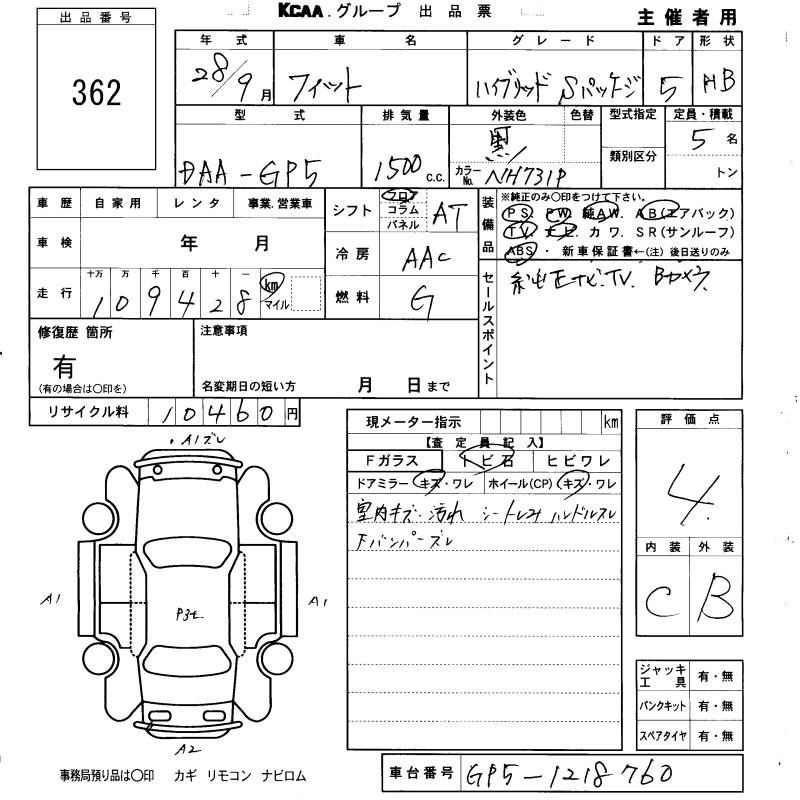 KCAA.グループ 出品票
主催者用
出品番号
362
年式 車名 グレード ドア 形状
28/9月 フィット ハイブリッド Sパッケージ 5 HB
型式 排気量 外装色 色替 型式指定 定員・積載
DAA-GP5 1500c.c. 黒 5名
カラーNo. NH731P 類別区分 トン
車歴 自家用 レンタ 事業.営業車
シフト フロア コラム パネル AT
装備品 ※純正のみ○印をつけて下さい。
PS. PW. 純AW. AB(エアバック)
TV. ナビ カワ. SR(サンルーフ)
ABS・ 新車保証書←(注)後日送りのみ
車検 年 月
冷房 AAC
走行 十万 万 千 百 十 一
109428 km マイル
燃料 G
セールスポイント 純正ナビ.TV. Bカメラ
修復歴 箇所
有
(有の場合は○印を)
注意事項
名変期日の短い方 月 日まで
リサイクル料 10460円
現メーター指示 km
【査定員記入】
Fガラス トビ石 ヒビワレ
ドアミラー キズ・ワレ ホイール(CP) キズ・ワレ
室内キズ・汚れ シートレスみ ハンドルスレ
Fバンパーズレ
評価点
4.
内装 外装
C B
・A1ズレ
A1
P3セ
A1
A2
ジャッキ工具 有・無
パンクキット 有・無
スペアタイヤ 有・無
事務局預り品は○印 カギ リモコン ナビロム
車台番号 GP5-1218760